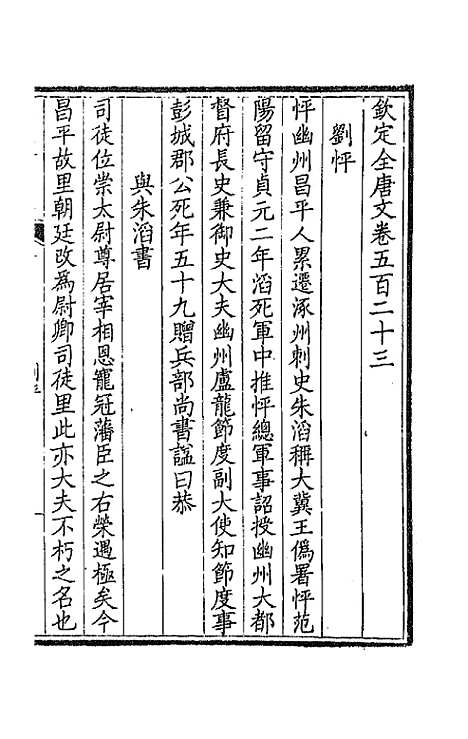 欽定全唐文卷五百二十三
劉怦
怦幽州昌平人累遷涿州刺史朱滔稱大冀王僞署怦范
陽留守貞元二年滔死軍中推怦總軍事詔授幽州大都
督府長史兼御史大夫幽州盧龍節度副大使知節度事
彭城郡公死年五十九贈兵部尚書諡曰恭
與朱滔書
司徒位崇太尉尊居宰相恩寵冠藩臣之右榮遇極矣今
昌平故里朝廷改爲尉卿司徒里此亦大夫不朽之名也